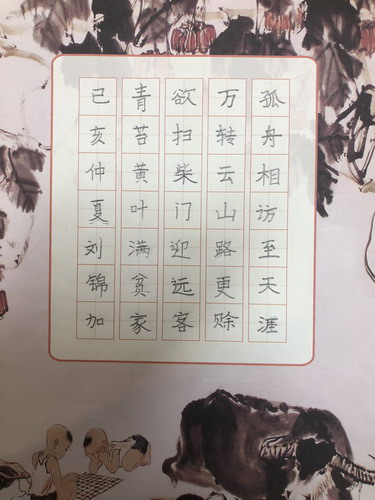 孤舟相访至天涯
万转云山路更赊
欲扫柴门迎远客
青苔黄叶满贫家
己亥仲夏刘锦加